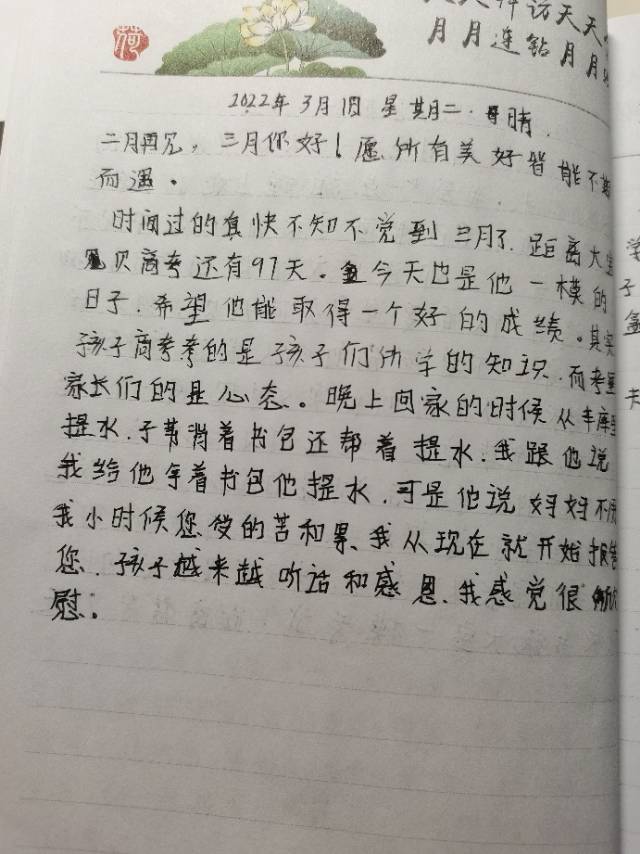 荷
天天开访天天
月月连钻月月
2022年3月1日 星期二 晴.
二月再见, 三月你好! 愿所有美好皆能不期
而遇。
时间过的真快不知不觉到三月了. 距离大宝
贝高考还有97天。今天也是他一模的
日子. 希望他能取得一个好的成绩。其实
孩子高考考的是孩子们所学的知识. 而考量
家长们的是心态。晚上回家的时候从车库里
提水. 子菁背着书包还帮着提水. 我跟他说
我给他拿着书包他提水. 可是他说妈妈不用
我小时候您受的苦和累、我从现在就开始报答
您. 孩子越来越听话和感恩. 我感觉很欣
慰。
学
子
金
夫